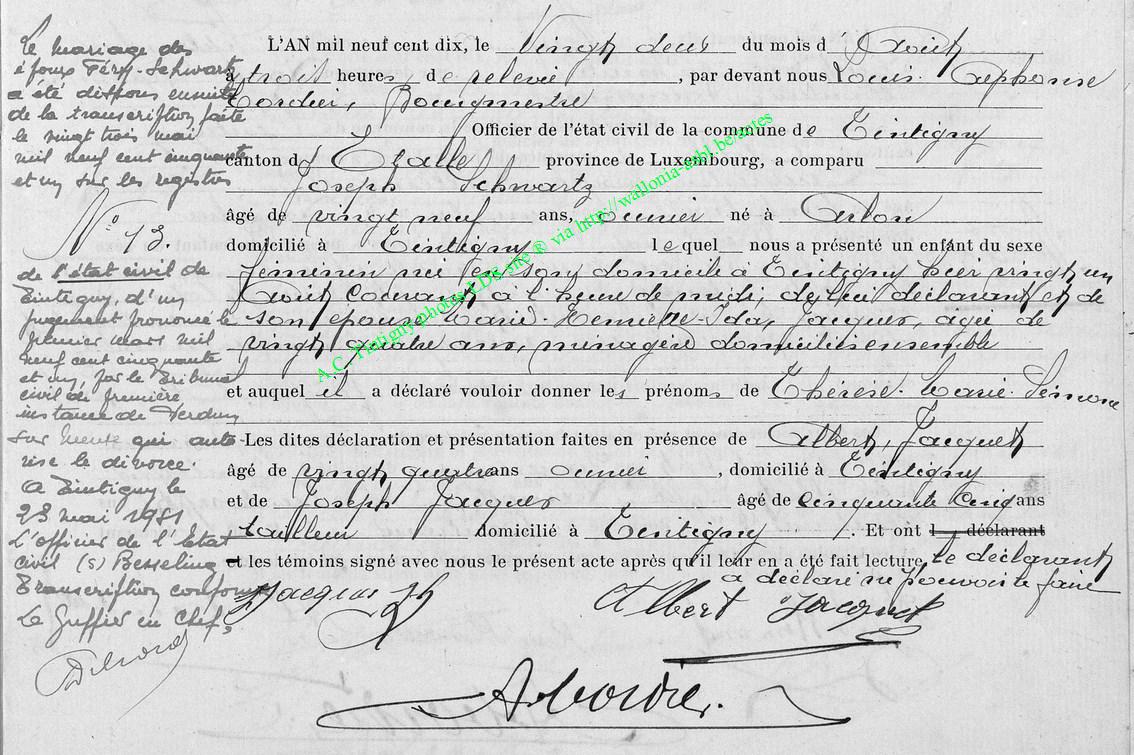 Le mariage des
époux Féry-Schwartz
a été dissous ensuite
de la transcription faite
le vingt trois mai
mil neuf cent cinquante
et un sur les registres
N° 73.
de l'état civil de
Tintigny, d'un
jugement prononcé le
premier mars mil
neuf cent cinquante
et un, par le Tribunal
civil de première
instance de Verdun
sur Meuse qui auto-
rise le divorce.
A Tintigny le
23 mai 1951
L'officier de l'Etat
civil (s) Besseling
Transcription conforme
Le Greffier en Chef,
L'AN mil neuf cent dix, le Vingt deux du mois d'Août
à trois heures, de relevée, par devant nous Louis Alphonse
Cordier, Bourgmestre
Officier de l'état civil de la commune de Tintigny
canton d'Etalle province de Luxembourg, a comparu
Joseph Schwartz
âgé de vingt neuf ans, ouvrier né à Arlon
domicilié à Tintigny lequel nous a présenté un enfant du sexe
féminin née en son domicile à Tintigny hier vingt un
Août courant à l'heure de midi; de lui déclarant et de
son épouse Marie-Henriette-Ida, Jacques, âgée de
vingt quatre ans, ménagère domiciliés ensemble
et auquel il a déclaré vouloir donner les prénoms de Thérèse Marie Simone
Les dites déclaration et présentation faites en présence de Albert, Jacquet
âgé de vingt quatre ans ouvrier, domicilié à Tintigny
et de Joseph Jacques âgé de Cinquante cinq ans
tailleur domicilié à Tintigny. Et ont l déclarant
et les témoins signé avec nous le présent acte après qu'il leur en a été fait lecture, le déclarant
a déclaré ne pouvoir le faire
Jacques Jh
Albert Jacquet
A Cordier.
A.C. Tintigny photos LDG site ® via http://wallonia-asbl.be/antes